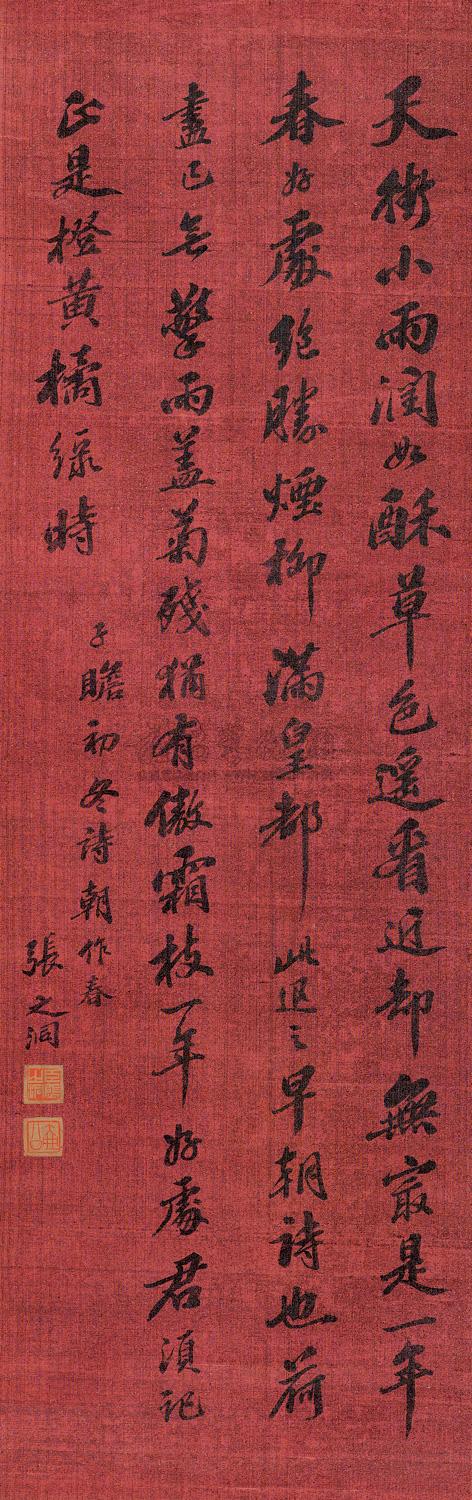 天街小雨潤如酥草色遙看近却無最是一年
春好處絕勝煙柳滿皇都此退之早朝詩也荷
盡已無擎雨盖菊殘猶有傲霜枝一年好處君須記
正是橙黃橘綠時
子瞻初冬詩朝作春
張之洞